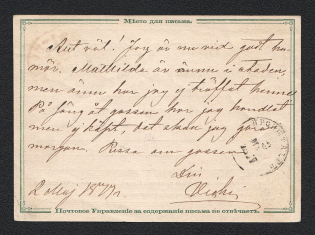 Мѣсто для письма.
Allt väl! Jag är nu vid godt hu-
mör. Mathilda är ännu i staden,
men ännu har jag ej träffat henne.
På fång åt gossen har jag handlat
men ej köpt, det skall jag göra i
morgon. Pussa om gossen
Din
2 Maj 18
Почтовое Управленіе за содержаніе письма не отвѣчаетъ.